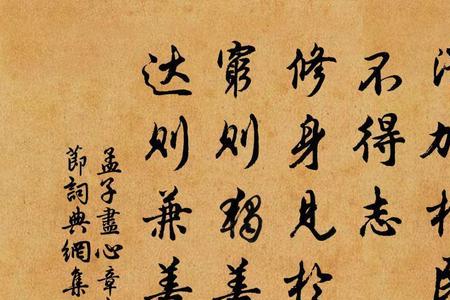 不得志
修身见於
窮则獨善
达则兼善
孟子盡心章
節詞典網集